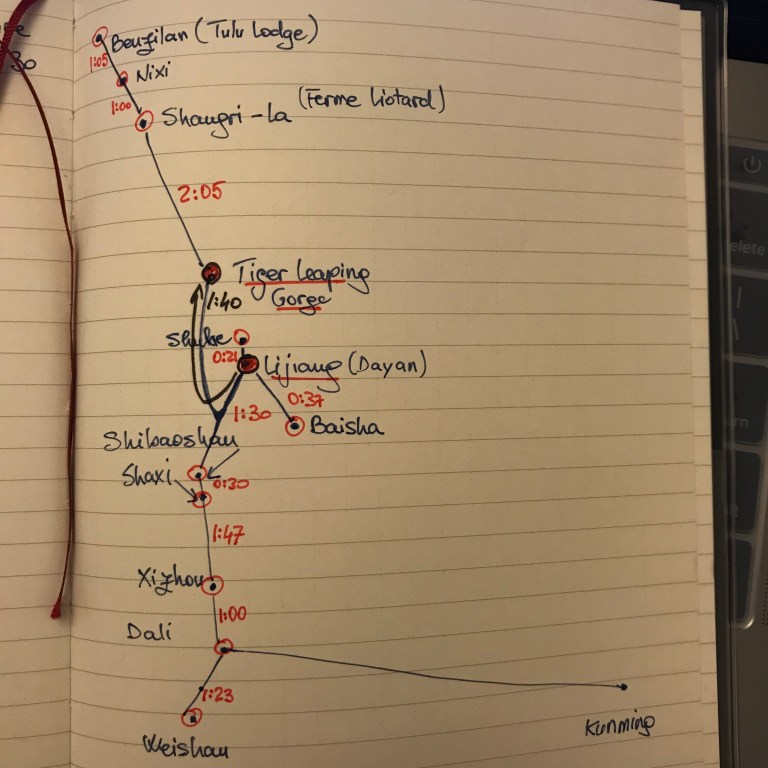 30
Benzilan (Tulu Lodge)
1:05
Nixi
1:00
Shangri-La (Ferme Liotard)
2:05
Tiger Leaping
Gorge
1:40
Shuhe
0:21
Lijiang (Dayan)
0:37
1:30
Baisha
Shibaoshan
Shaxi
0:30
1:47
Xizhou
1:00
Dali
1:23
Weishan
Kunming
elete